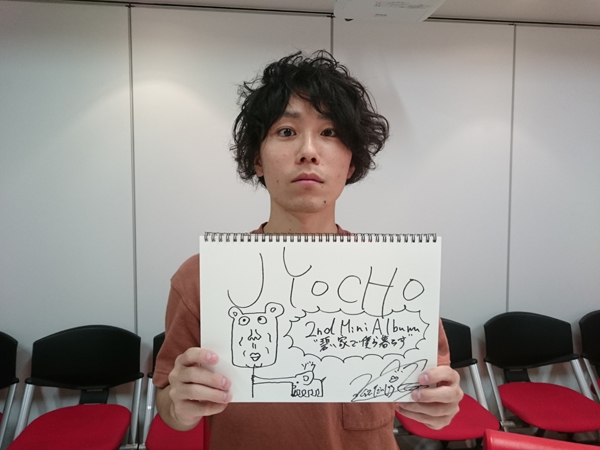 JYOCHO
2nd Mini Album
"碧い家で僕ら暮らす"